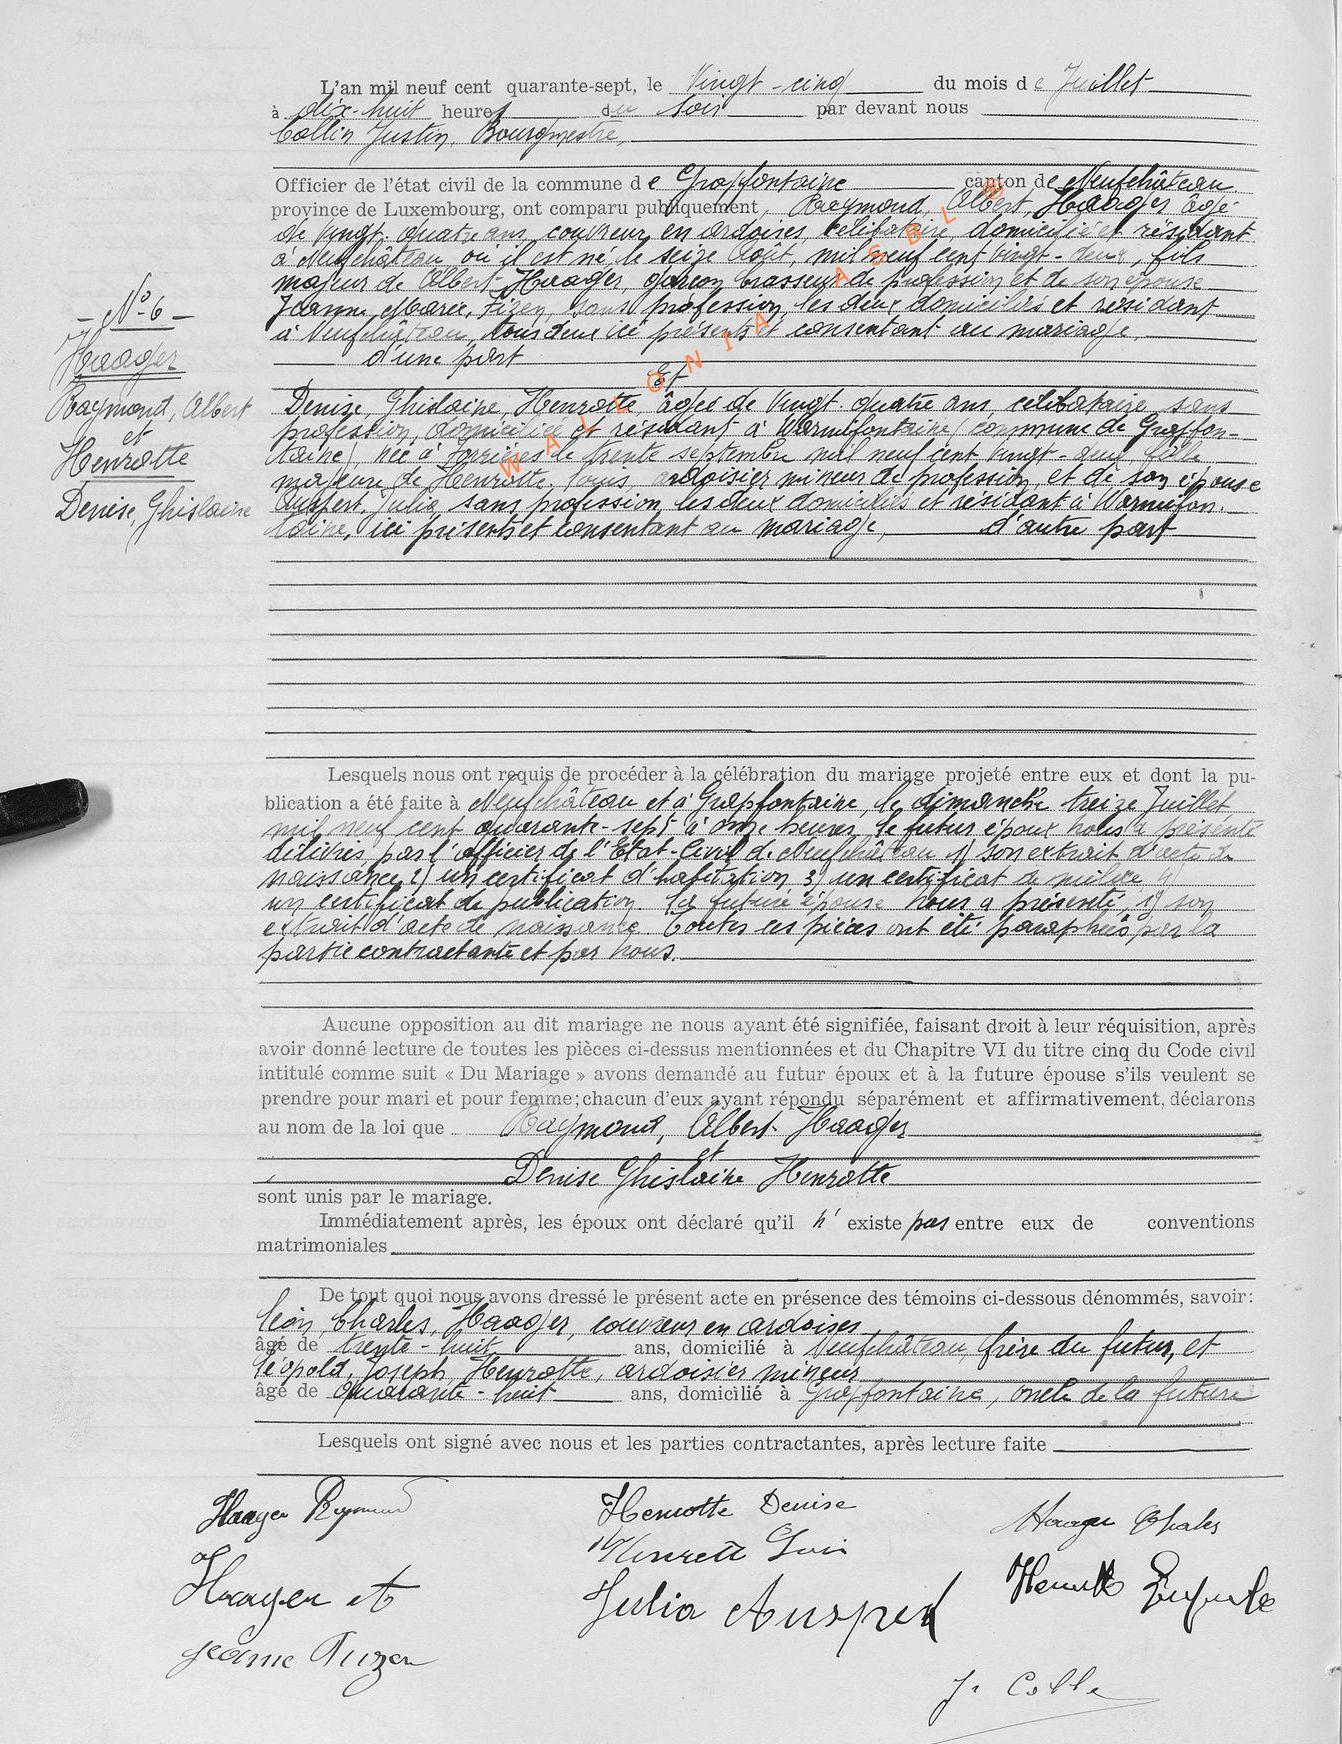 L'an mil neuf cent quarante-sept, le Vingt-cinq du mois de Juillet
à dix-huit heures du soir par devant nous
Collin Justin, Bourgmestre,
Officier de l'état civil de la commune de Grapfontaine canton de Neufchâteau
province de Luxembourg, ont comparu publiquement, Raymond, Albert, Haager âgé
de vingt-quatre ans, couvreur en ardoises, célibataire, domicilié et résidant
à Neufchâteau où il est né le seize Août, mil neuf cent vingt-deux, fils
majeur de Albert Haager, garçon brasseur de profession et de son épouse
Jeanne, Marie, Fizen, sans profession, les deux domiciliés et résidant
à Neufchâteau, tous deux ici présents et consentant au mariage,
d'une part
Et
- No 6 -
Haager
Raymond, Albert
et
Henrotte
Denise, Ghislaine
Denise, Ghislaine, Henrotte âgée de vingt-quatre ans, célibataire, sans
profession, domiciliée et résidant à Warmifontaine (commune de Grapfon-
taine), née à le trente septembre mil neuf cent vingt- fille
majeure de Henrotte, Louis, ardoisier mineur de profession, et de son épouse
Auspert, Julia, sans profession, les deux domiciliés et résidant à Warmifon-
taine, ici présents et consentant au mariage, d'autre part
WALLONIA ASBL
Lesquels nous ont requis de procéder à la célébration du mariage projeté entre eux et dont la pu-
blication a été faite à Neufchâteau et à Grapfontaine, le dimanche treize Juillet
mil neuf cent quarante-sept à onze heures, le futur époux nous a présenté
délivrés par l'officier de l'Etat-Civil de Neufchâteau 1) son extrait d'acte de
naissance 2) un certificat d'habitation 3) un certificat de milice 4)
un certificat de publication. La future épouse nous a présenté, 1) son
extrait d'acte de naissance. Toutes ces pièces ont été paraphées par la
partie contractante et par nous.
Aucune opposition au dit mariage ne nous ayant été signifiée, faisant droit à leur réquisition, après
avoir donné lecture de toutes les pièces ci-dessus mentionnées et du Chapitre VI du titre cinq du Code civil
intitulé comme suit « Du Mariage » avons demandé au futur époux et à la future épouse s'ils veulent se
prendre pour mari et pour femme; chacun d'eux ayant répondu séparément et affirmativement, déclarons
au nom de la loi que Raymond, Albert Haager
et
Denise Ghislaine Henrotte
sont unis par le mariage.
Immédiatement après, les époux ont déclaré qu'il n' existe pas entre eux de conventions
matrimoniales
De tout quoi nous avons dressé le présent acte en présence des témoins ci-dessous dénommés, savoir:
Léon, Charles, Haager, couvreur en ardoises
âgé de trente-huit ans, domicilié à Neufchâteau, frère du futur, et
Léopold, Joseph, Henrotte, ardoisier mineur
âgé de quarante-huit ans, domicilié à Grapfontaine, oncle de la future
Lesquels ont signé avec nous et les parties contractantes, après lecture faite
Haager Raymond
Henrotte Denise
Haager Charles
Henrotte Louis
Haager
Julia Auspert
Henrotte
Jeanne
J. Collin